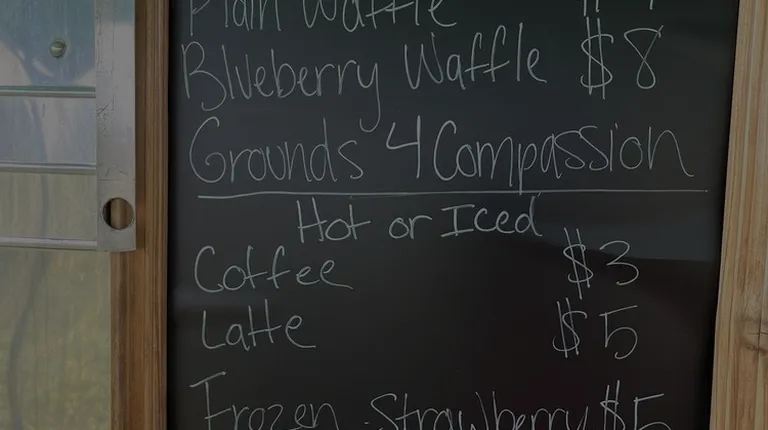 Plain Waffle
Blueberry Waffle $8
Grounds 4 Compassion
Hot or Iced
Coffee $3
Latte $5
Frozen Strawberry $5